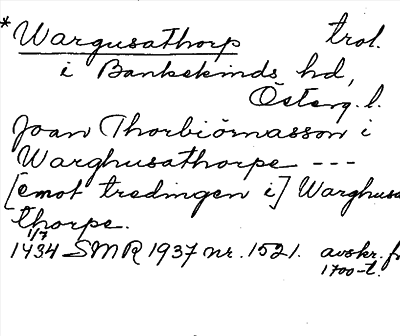 *Wargusathorp trol.
i Bankekinds hd,
Österg. l.
Joan Thorbiörnasson i
Warghusathorpe ---
[emot tredingen i] Warghusa
thorpe.
1/7
1434 SMR 1937 nr. 1521. avskr. fr
1700-t.